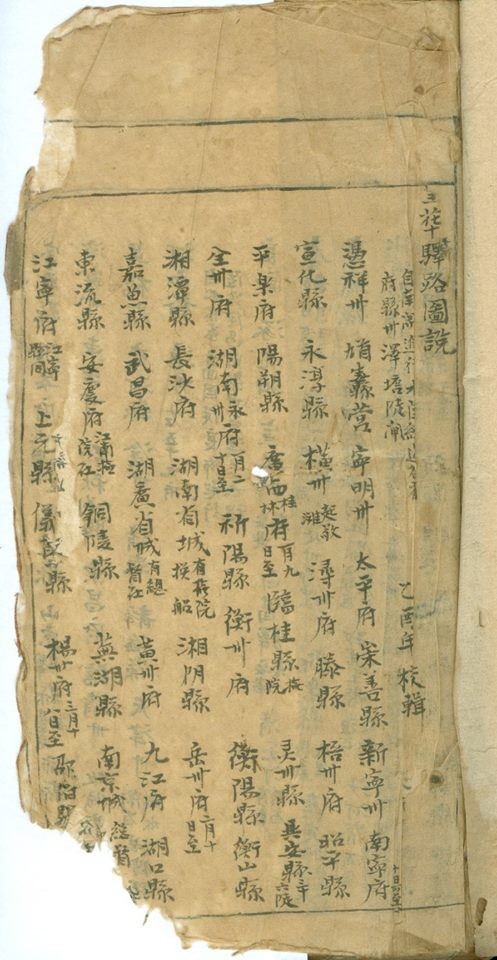 花驛路圖說
自南寧進行水陸
府縣州澤塘陡閘 乙酉年 校輯
憑祥州 蠹营 寧明州 太平府 崇善縣 新寧州 南寧府
宣化縣 永淳縣 橫州 起敬灘 潯州府 滕縣 梧州府 昭平縣
平樂府 陽朔縣 桂林府 月九日至 臨桂縣 院 灵川縣 具安縣 六陡
全州府 湖南永州府 二月十日至 祈陽縣 衡州府 衡陽縣 衡山縣
湘潭縣 長沙府 湖南省城 有撫院 換船 湘阴縣 岳州府 二月十日至
嘉魚縣 武昌府 湖廣省城 有總督 江 黄州府 九江府 湖口縣
東流縣 安慶府 院 江 铜陵縣 蕪湖縣 南京城 總督
江寧府 江寧縣 同 上元縣 儀縣 楊州府 三月十日至 邵伯